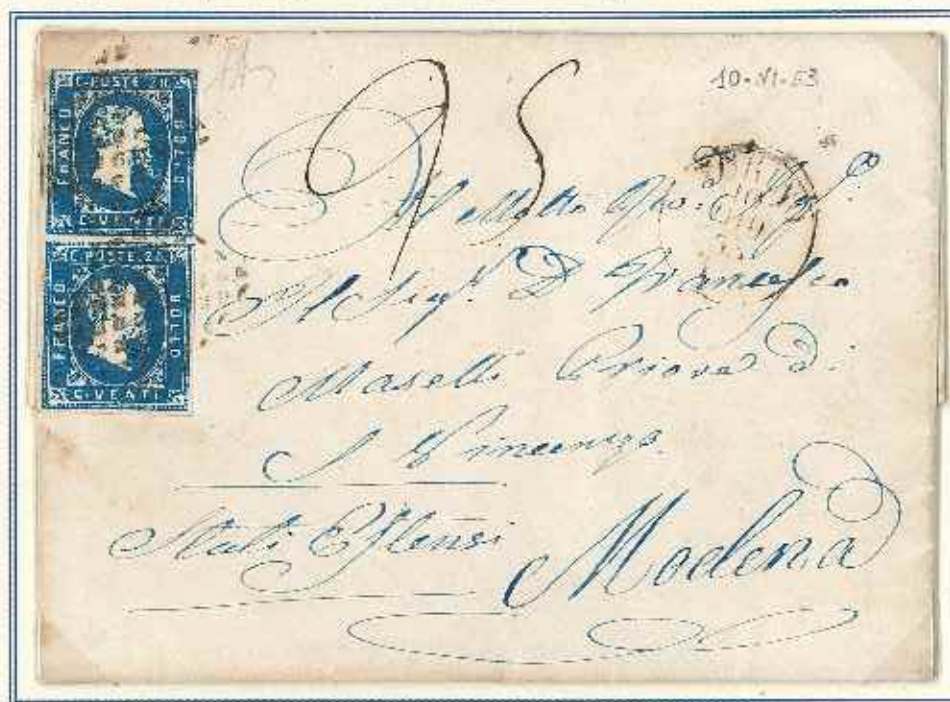 C. POSTE. 20
FRANCO
BOLLO
C. VENTI
C. POSTE. 20
FRANCO
BOLLO
C. VENTI
10-VI-53
25
Al Molto
Il Sigr. D. Francesco
Maselli Priore di
S. Vincenzo
Stati Estensi
Modena